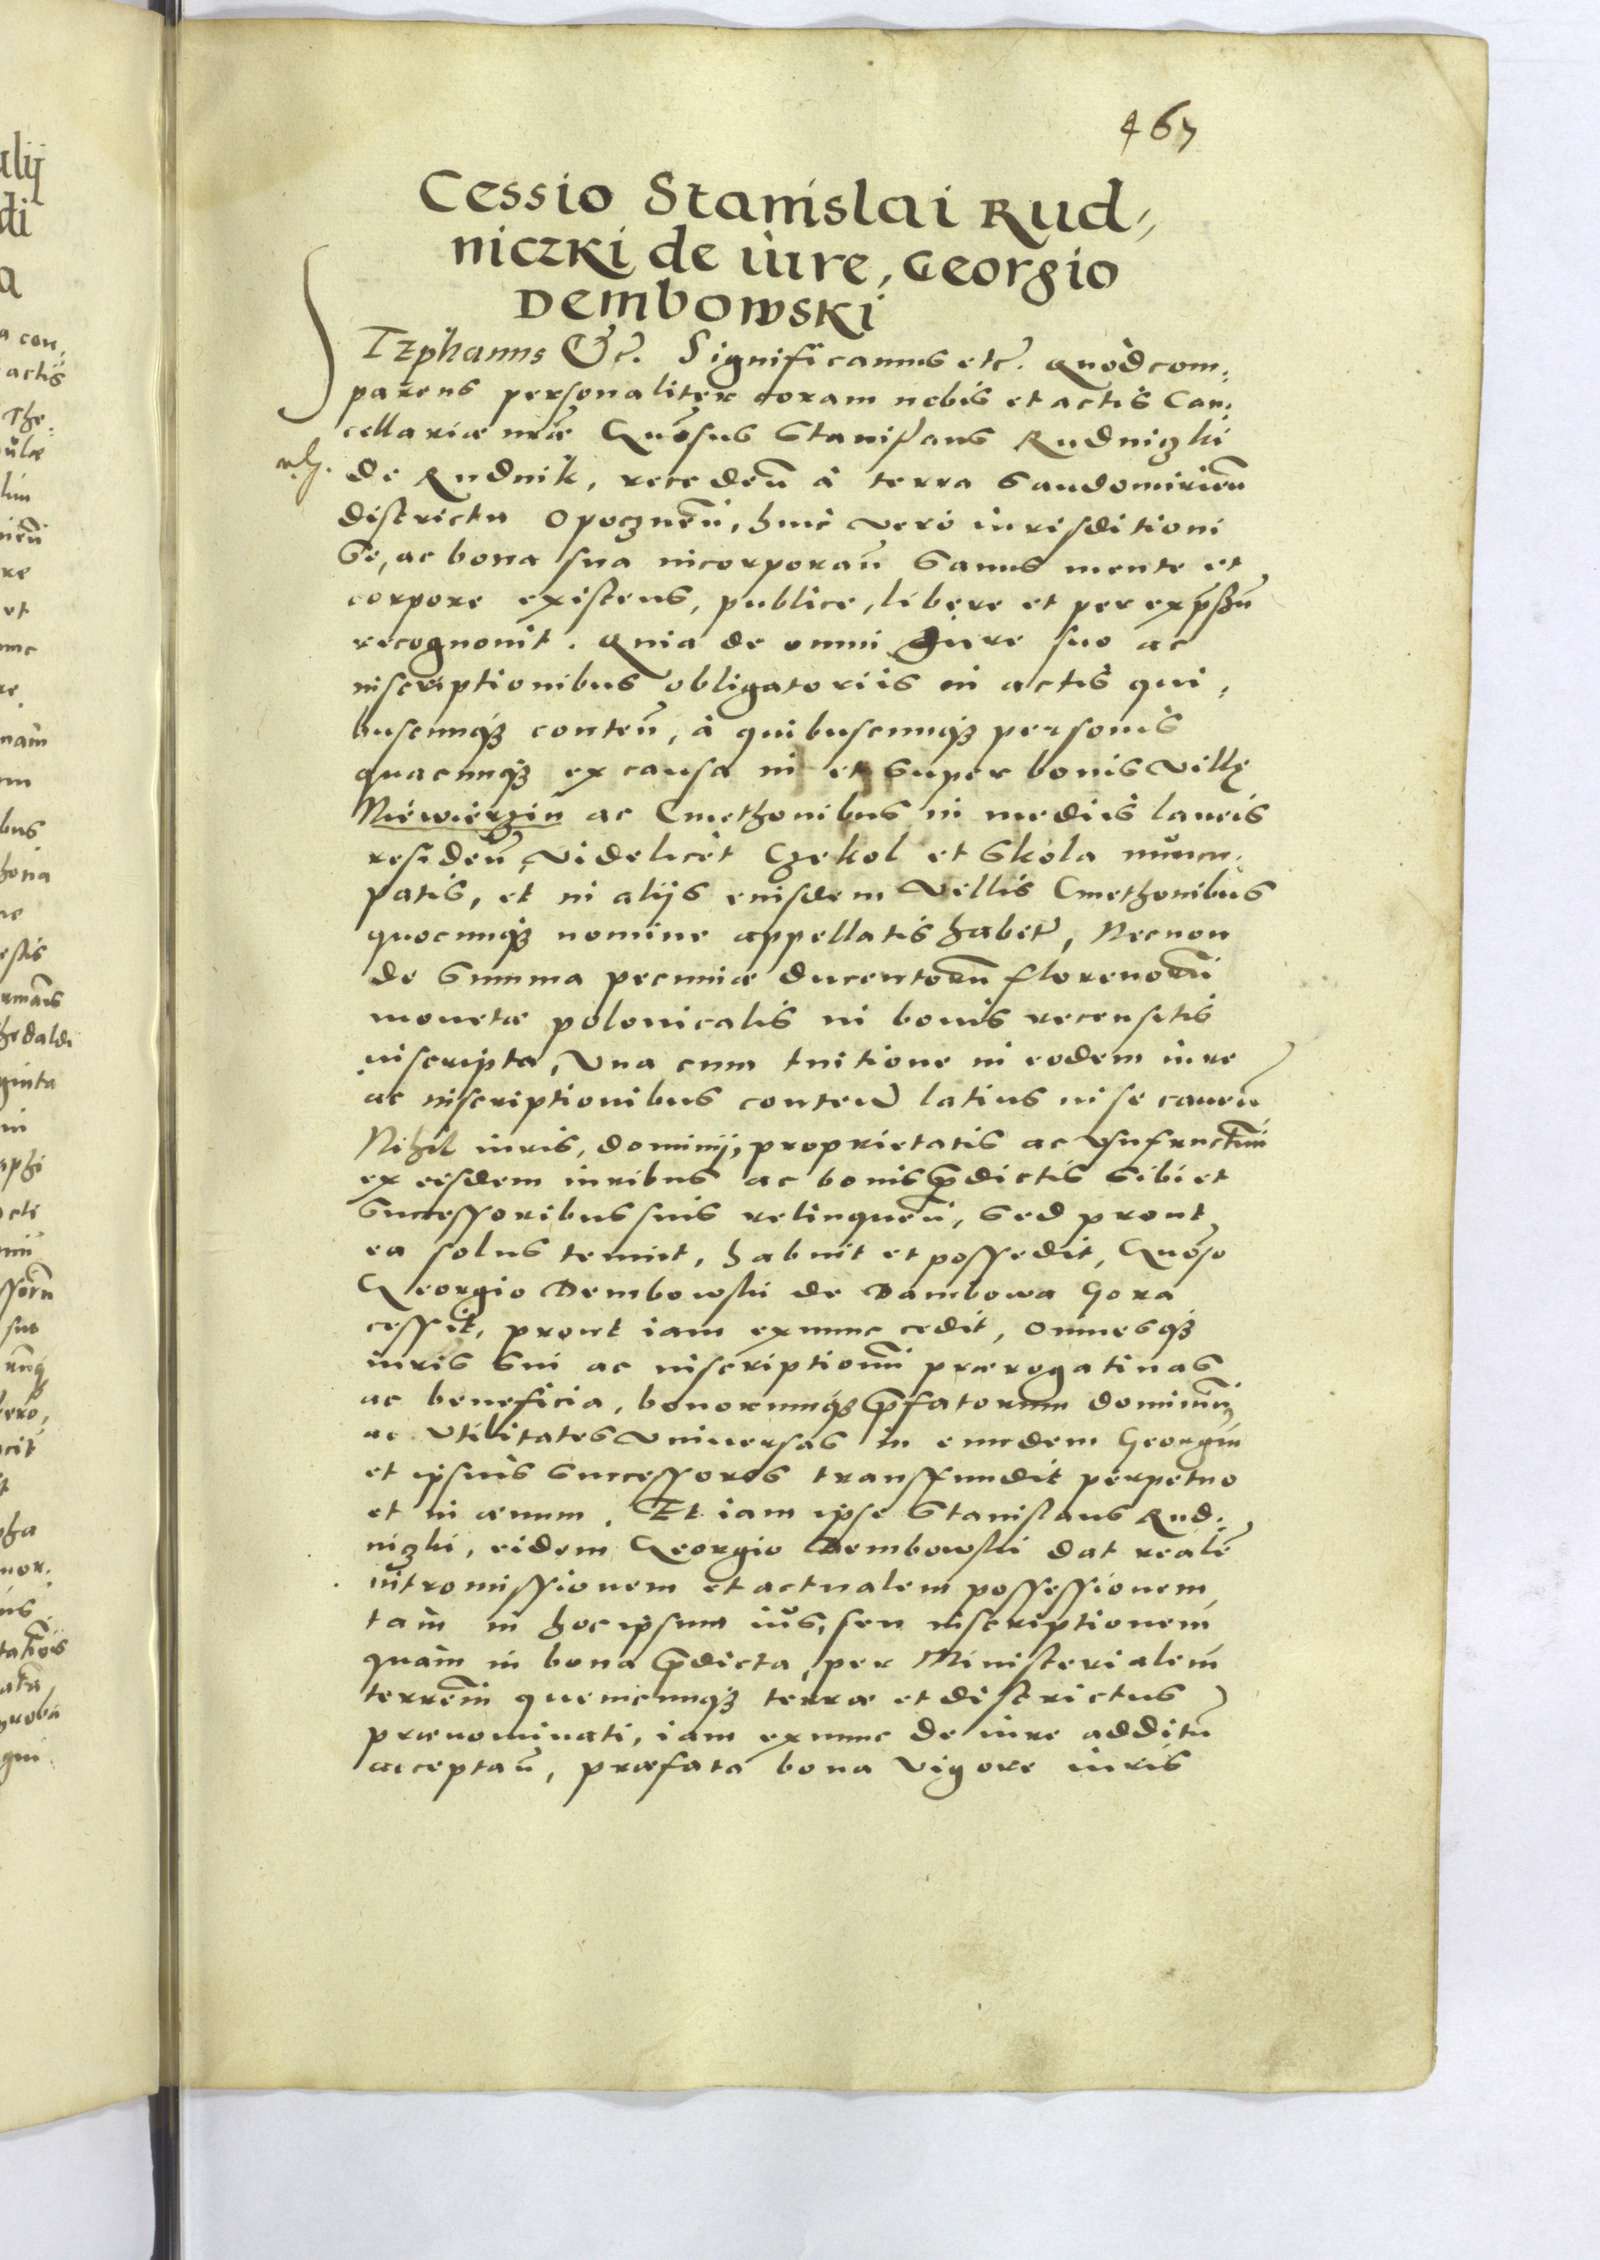 467
Cessio Stanislai Rud,
niczki de iure, Georgio
Dembowski
Stephanus &c. Significamus etc. Quod com,
parens personaliter coram nobis et actis Can,
cellariæ nrae Gnosus Stanislaus Rudniczki
de Rudnik, recedeñ à terra Sandomirieñ
districtu Opoczneñ, huic vero iurisditioni
se, ac bona sua incorporañ sanus mente et
corpore existens, publice, libere et per expssũ
recognovit. Quia de omni iure suo ac
inscriptionibus obligatoriis in actis qui,
buscunq3 conteñ, à quibuscunq3 personis
quacunq3 ex causa in et super bonis villę
Niewierzin ac Cmethonibus in mediis laneis
resideñ videlicet Czekol et Skola nuncu,
patis, et in aliis eiusdem villis Cmethonibus
quocunq3 nomine appellatis habet, Necnon
de summa pecuniæ ducentorũ florenorũ
monetæ polonicalis in bonis recensitis
inscripta, Una cum tuitione in eodem iure
ac inscriptionibus conteñ latius in se caveñ
Nihil iuris, dominij, proprietatis ac usufructuũ
ex eisdem iuribus ac bonis pdictis sibi et
successoribus suis relinqueñ, sed prout
ea solus tenuit, habuit et possedit, Gnoso
Georgio Dembowski de Dambowa Gora
cessit, prout iam ex nunc cedit, omnesq3
iuris sui ac inscriptionũ prærogativas
ac beneficia, bonorumq3 pfatorum dominiũ
ac utilitates universas in eundem Georgiũ
et ipsius successores transfundit perpetuo
et in ævum. Et iam ipse Stanislaus Rud,
niczki, eidem Georgio Dembowski dat realẽ
intromissionem et actualem possessionem,
tam in hoc ipsum ius, seu inscriptionem
quàm in bona pdicta, per Ministerialem
terreñ quemcunq3 terræ et districtus
prænominati, iam ex nunc de iure additũ
acceptañ, præfata bona vigore iuris